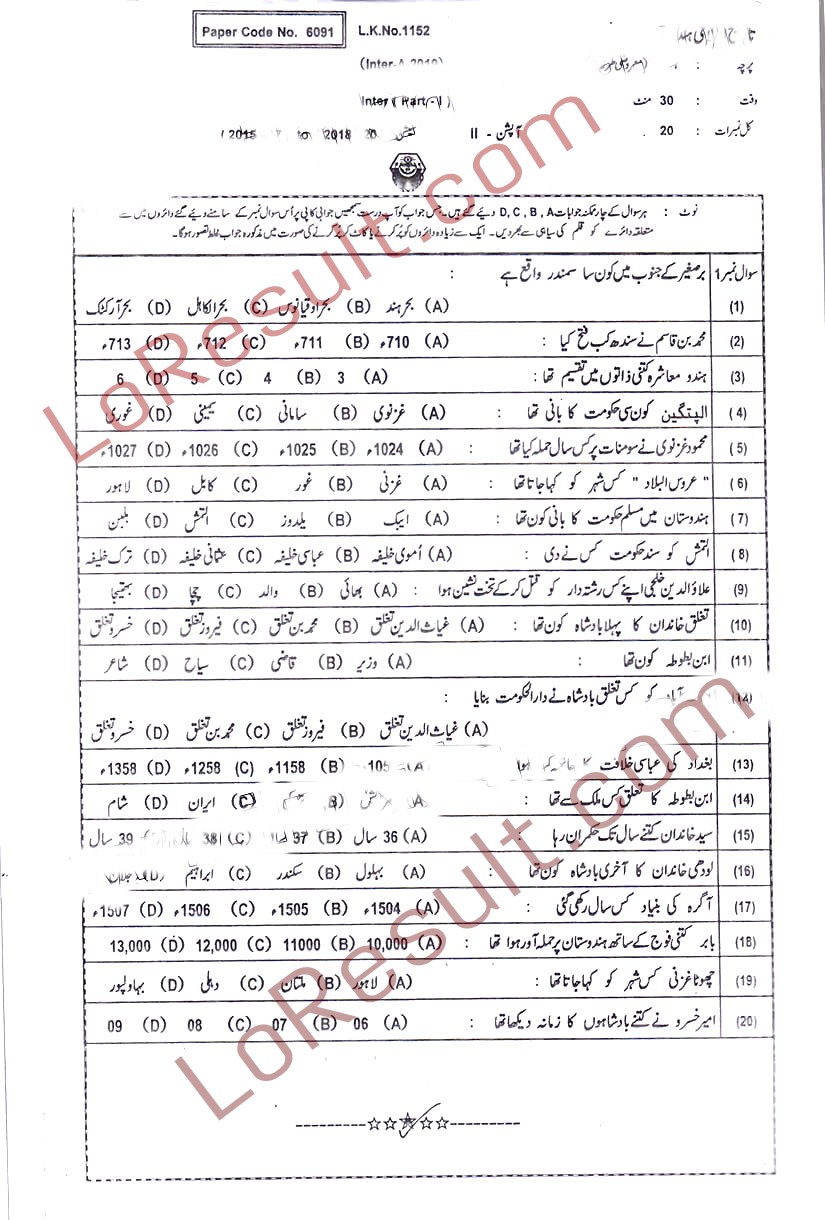 Paper Code No. 6091 L.K.No.1152
(Inter-A-2018)
Inter (Part - I)
وقت : 30 منٹ
کل نمبرات : 20 آپشن - II 2018 2015
نوٹ : ہر سوال کے چار ممکنہ جوابات D, C, B, A دیئے گئے ہیں۔ جس جواب کو آپ درست سمجھیں جوابی کاپی پر اُس سوال نمبر کے سامنے دیئے گئے دائروں میں سے
متعلقہ دائرے کو قلم کی سیاہی سے بھر دیں۔ ایک سے زیادہ دائروں کو پُر کرنے یا کاٹ کر پُر کرنے کی صورت میں مذکورہ جواب غلط تصور ہوگا۔
سوال نمبر 1 برصغیر کے جنوب میں کون سا سمندر واقع ہے :
(1) (A) بحر ہند (B) بحر اوقیانوس (C) بحر الکاہل (D) بحر آرکٹک
(2) محمد بن قاسم نے سندھ کب فتح کیا : (A) 710ء (B) 711ء (C) 712ء (D) 713ء
(3) ہندو معاشرہ کتنی ذاتوں میں تقسیم تھا : (A) 3 (B) 4 (C) 5 (D) 6
(4) الپتگین کون سی حکومت کا بانی تھا : (A) غزنوی (B) سامانی (C) یمینی (D) غوری
(5) محمود غزنوی نے سومنات پر کس سال حملہ کیا تھا : (A) 1024ء (B) 1025ء (C) 1026ء (D) 1027ء
(6) "عروس البلاد" کس شہر کو کہا جاتا تھا : (A) غزنی (B) غور (C) کابل (D) لاہور
(7) ہندوستان میں مسلم حکومت کا بانی کون تھا : (A) ایبک (B) یلدوز (C) التمش (D) بلبن
(8) التمش کو سند حکومت کس نے دی : (A) اُموی خلیفہ (B) عباسی خلیفہ (C) عثمانی خلیفہ (D) ترک خلیفہ
(9) علاؤ الدین خلجی اپنے کس رشتہ دار کو قتل کر کے تخت نشین ہوا : (A) بھائی (B) والد (C) چچا (D) بھتیجا
(10) تغلق خاندان کا پہلا بادشاہ کون تھا : (A) غیاث الدین تغلق (B) محمد بن تغلق (C) فیروز تغلق (D) خسرو تغلق
(11) ابن بطوطہ کون تھا : (A) وزیر (B) قاضی (C) سیاح (D) شاعر
(12) کو کس تغلق بادشاہ نے دارالحکومت بنایا :
(A) غیاث الدین تغلق (B) فیروز تغلق (C) محمد بن تغلق (D) خسرو تغلق
(13) بغداد کی عباسی خلافت کا (A) 105 (B) 1158ء (C) 1258ء (D) 1358ء
(14) ابن بطوطہ کا تعلق کس ملک سے تھا : (A) (B) (C) ایران (D) شام
(15) سید خاندان کتنے سال تک حکمران رہا : (A) 36 سال (B) 37 سال (C) 38 سال (D) 39 سال
(16) لودھی خاندان کا آخری بادشاہ کون تھا : (A) بہلول (B) سکندر (C) ابراہیم (D)
(17) آگرہ کی بنیاد کس سال رکھی گئی : (A) 1504ء (B) 1505ء (C) 1506ء (D) 1507ء
(18) بابر کتنی فوج کے ساتھ ہندوستان پر حملہ آور ہوا تھا : (A) 10,000 (B) 11000 (C) 12,000 (D) 13,000
(19) چھوٹا غزنی کس شہر کو کہا جاتا تھا : (A) لاہور (B) ملتان (C) دہلی (D) بہاولپور
(20) امیر خسرو نے کتنے بادشاہوں کا زمانہ دیکھا تھا : (A) 06 (B) 07 (C) 08 (D) 09
LoResult.com
LoResult.com